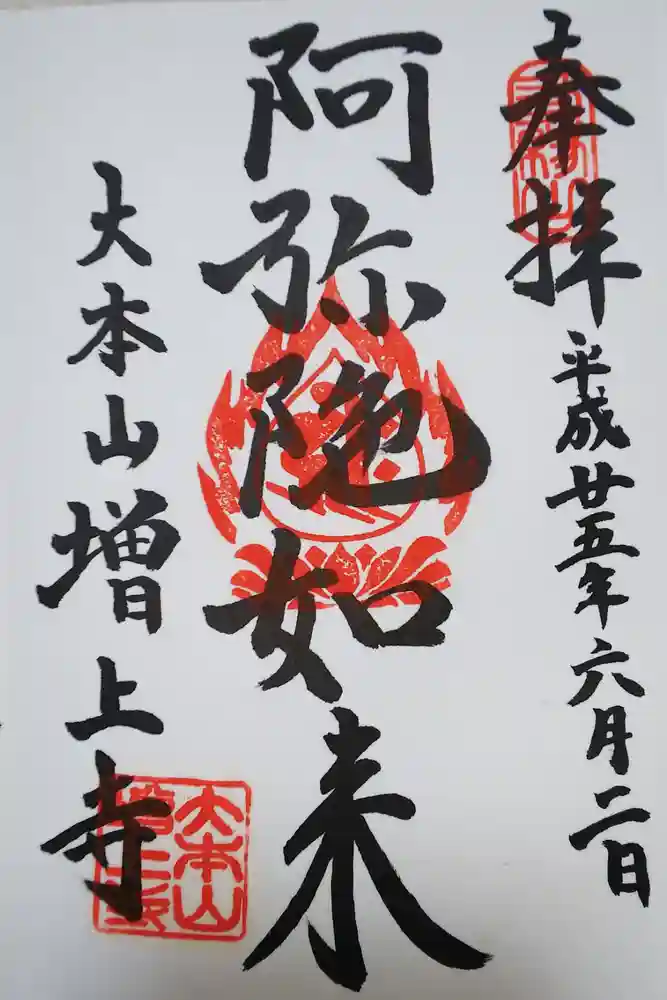 奉拝
平成廿五年六月二日
阿弥陀如来
大本山増上寺
三縁山
大本山
増上寺